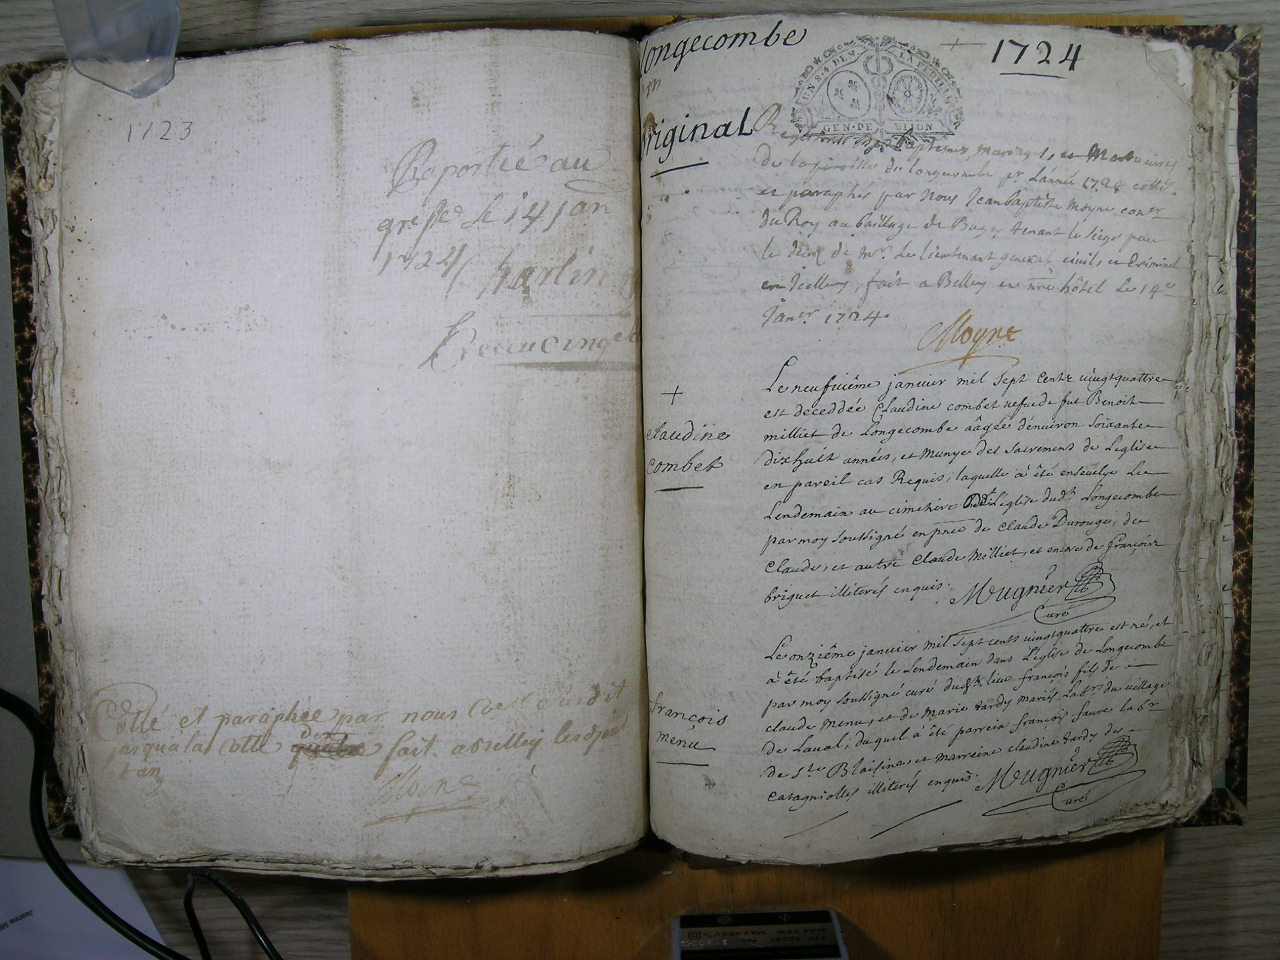 1723
Raportée au
greffe le 14 Jan
1724 Charlin
Receu cinq
Cotte et paraphee par nous
jusqua la cotte fait a Belley lesdjour
et an
Moyne
Longecombe
1724
GEN. DE DIJON
Original
Registre des Baptemes, Mariages, et Mortuaires
de la paroisse de Longecombe pr. Lannée 1724 cotté.
et paraphés par Nous Jean baptiste Moyne coner
du Roy au baillage de Bugey tenant le siege pour
le de Mr. Le lieutenant general civil, et Criminel
en Icelluy, fait a Belley en nre hôtel Le 14e
Janer. 1724.
Moyne
+
Claudine
Combet
Le neufuiême januier mil sept cents vingtquattre
est deceddée Claudine combet vefue de fut Benoit
milliet de Longecombe aâgée dénuiron Soixante
dixhuit années, et Munye des Sacrements de Leglise
en pareil cas Requis, laquelle à été enseuelye Le
Lendemain au cimitiere de Léglise dudt. Longecombe
par moy soussigné en pnce de Claude Durouge, de
Claude, et autre Claude Milliet, et encre de françoise
briguet illiterés enquis.
Meugnier
Curé
françois
menu
Le onziême januier mil sept cents vingtquattre est né, et
à été baptisé le Lendemain dans L'église de Longecombe
par moy soussigné curé dudt. lieu françois fils de
claude Menu, et de Marie tardy mariés Labr. du village
de Laual, duquel à été parrein françois faure labr
de Ste. Blaisine et marreine claudine tardy des
Catagniolles illiterés enquis.
Meugnier
Curé